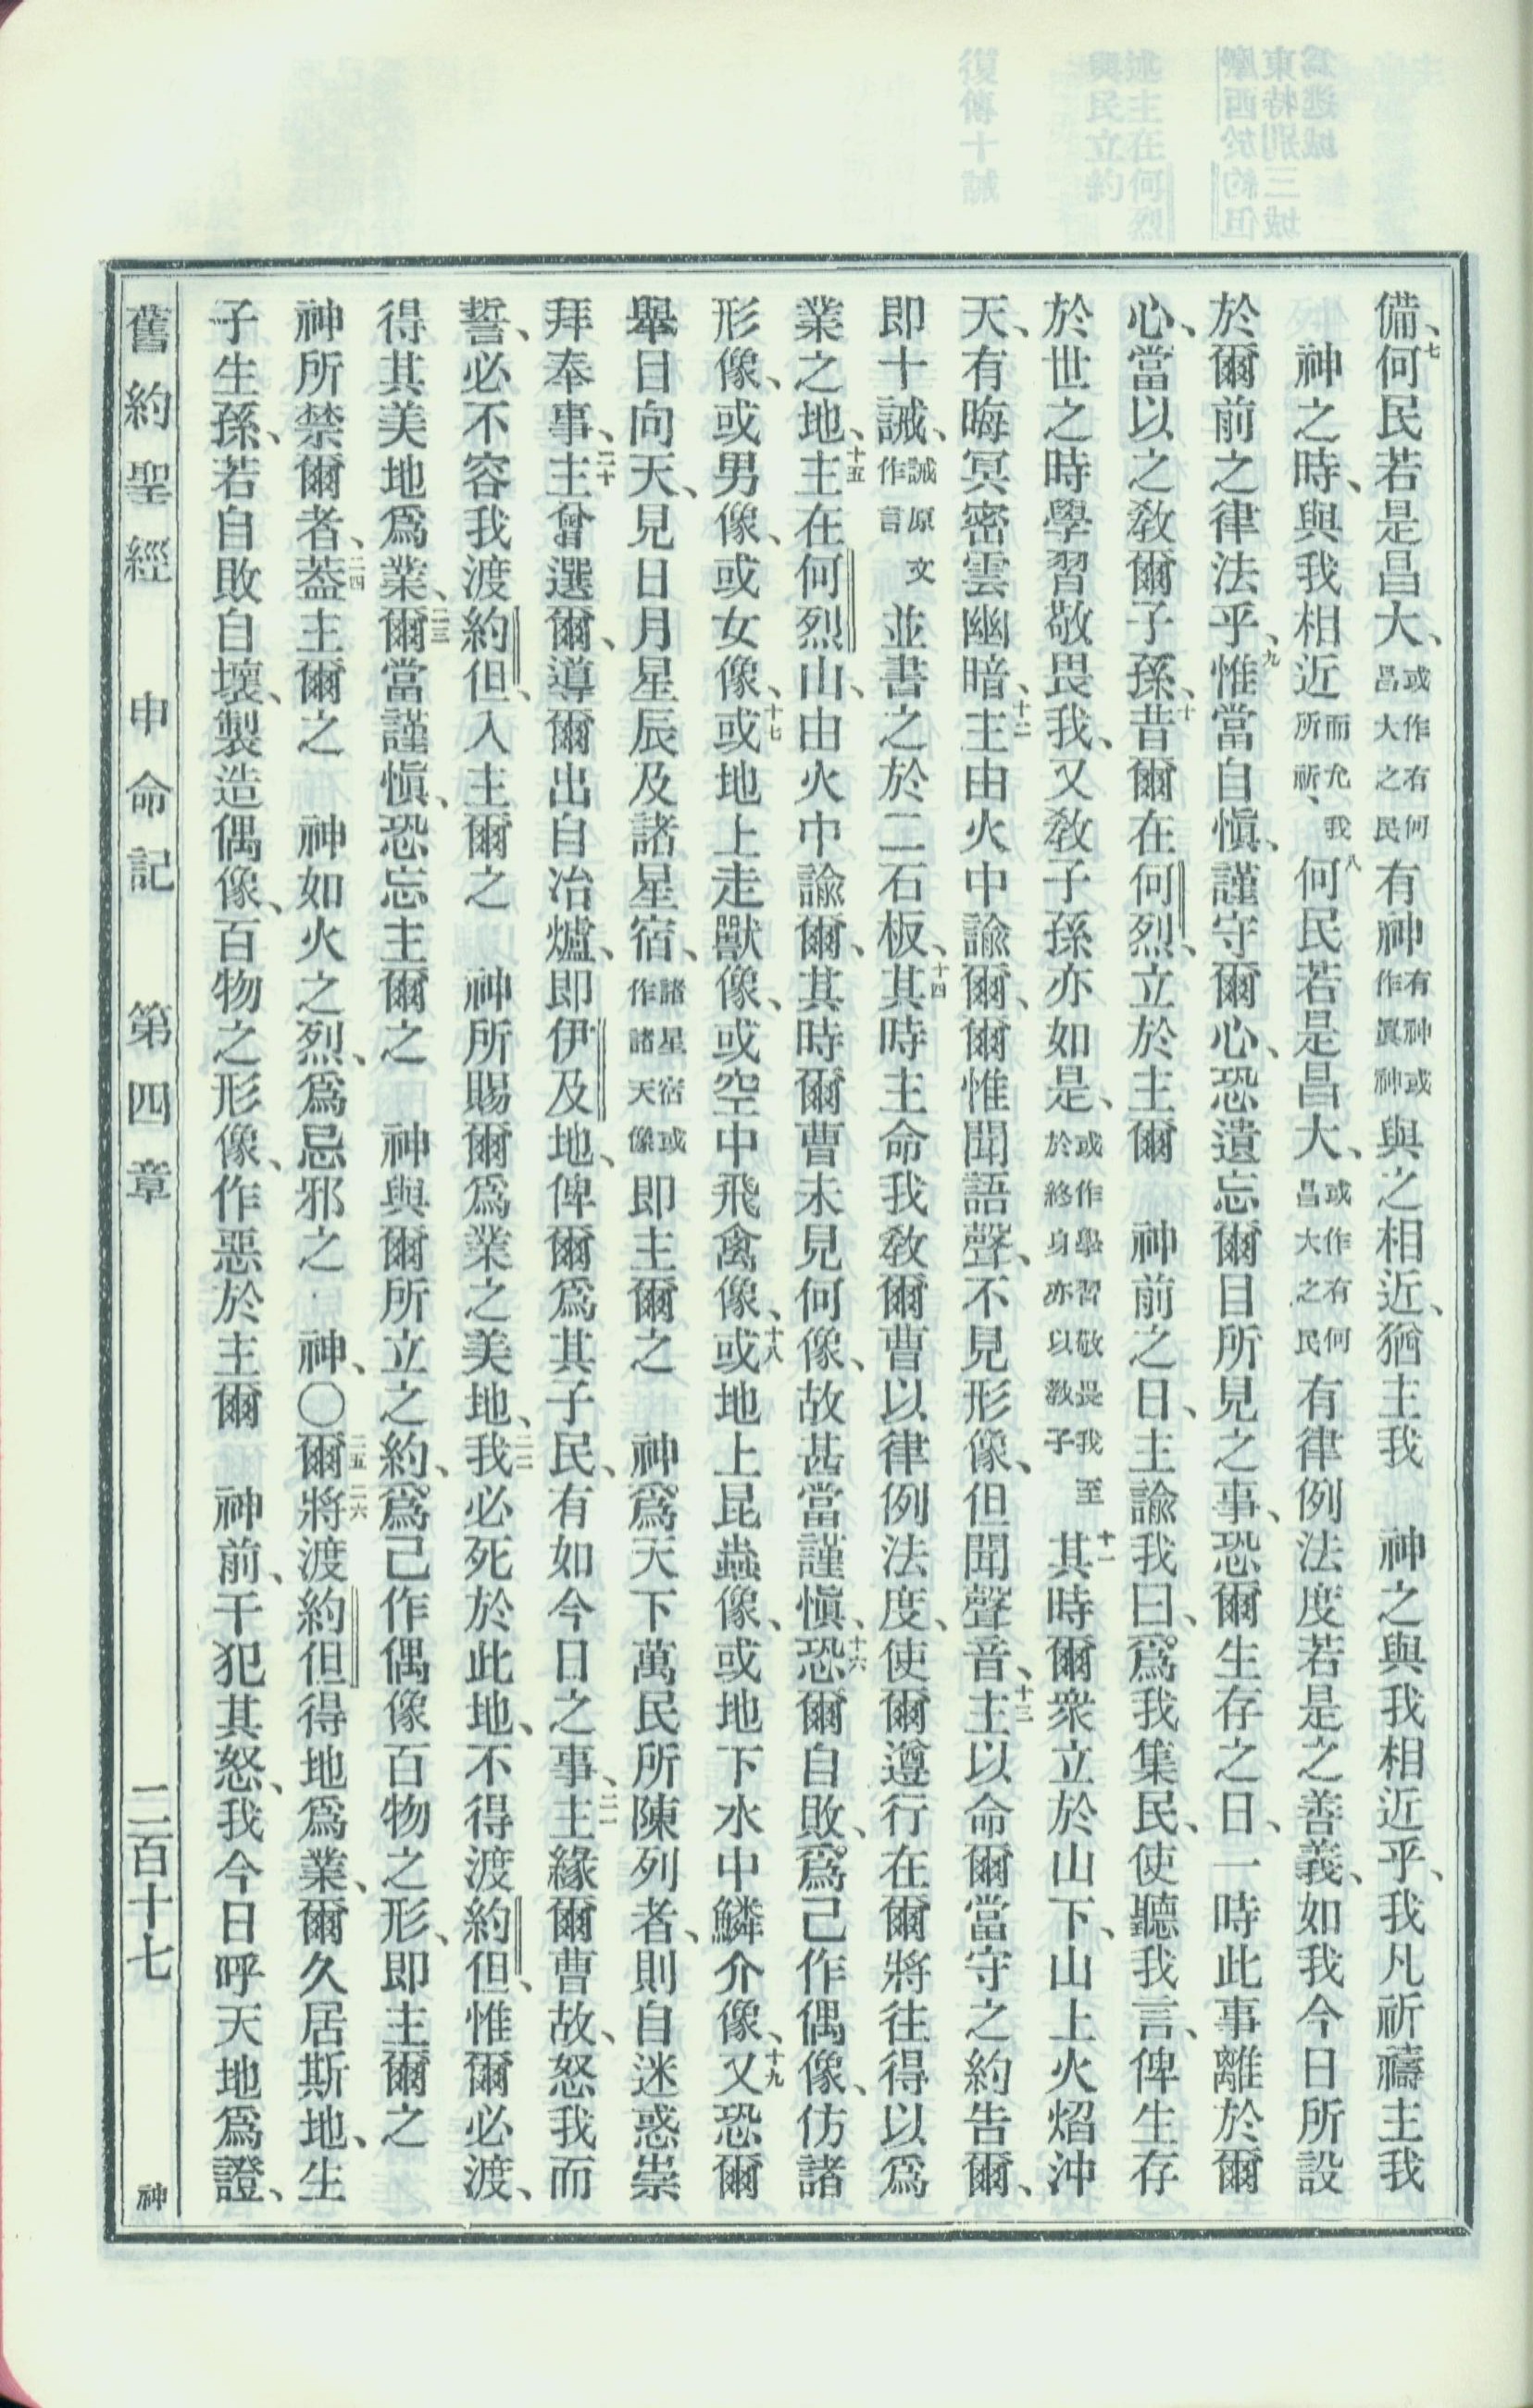 備、七何民若是昌大、或作有何昌大之民有神有神或作眞神與之相近、猶主我　神之與我相近乎、我凡祈禱主我
神之時、與我相近而允我所祈、八何民若是昌大、或作有何昌大之民有律例法度若是之善義、如我今日所設
於爾前之律法乎、九惟當自愼、謹守爾心、恐遺忘爾目所見之事、恐爾生存之日、一時此事離於爾
心、當以之敎爾子孫、十昔爾在何烈、立於主爾　神前之日、主諭我曰、爲我集民、使聽我言、俾生存
於世之時學習敬畏我、又敎子孫亦如是、或作學習敬畏我至於終身亦以敎子十一其時爾衆立於山下、山上火焰沖
天、有晦冥密雲幽暗、十二主由火中諭爾、爾惟聞語聲、不見形像、但聞聲音、十三主以命爾當守之約告爾、
即十誡、誡原文作言並書之於二石板、十四其時主命我敎爾曹以律例法度、使爾遵行在爾將往得以爲
業之地、十五主在何烈山、由火中諭爾、其時爾曹未見何像、故甚當謹愼、十六恐爾自敗、爲己作偶像、仿諸
形像、或男像、或女像、十七或地上走獸像、或空中飛禽像、十八或地上昆蟲像、或地下水中鱗介像、十九又恐爾
舉目向天、見日月星辰及諸星宿、諸星宿或作諸天像即主爾之　神爲天下萬民所陳列者、則自迷惑崇
拜奉事、二十主曾選爾、導爾出自冶爐、即伊及地、俾爾爲其子民、有如今日之事、二一主緣爾曹故、怒我而
誓、必不容我渡約但、入主爾之　神所賜爾爲業之美地、二二我必死於此地、不得渡約但、惟爾必渡、
得其美地爲業、二三爾當謹愼、恐忘主爾之　神與爾所立之約、爲己作偶像百物之形、即主爾之
神所禁爾者、二四蓋主爾之　神如火之烈、爲忌邪之　神、〇二五爾二六將渡約但得地爲業、爾久居斯地、生
子生孫、若自敗自壞、製造偶像、百物之形像、作惡於主爾　神前、干犯其怒、我今日呼天地爲證、
舊約聖經　申命記　第四章　二百十七　神